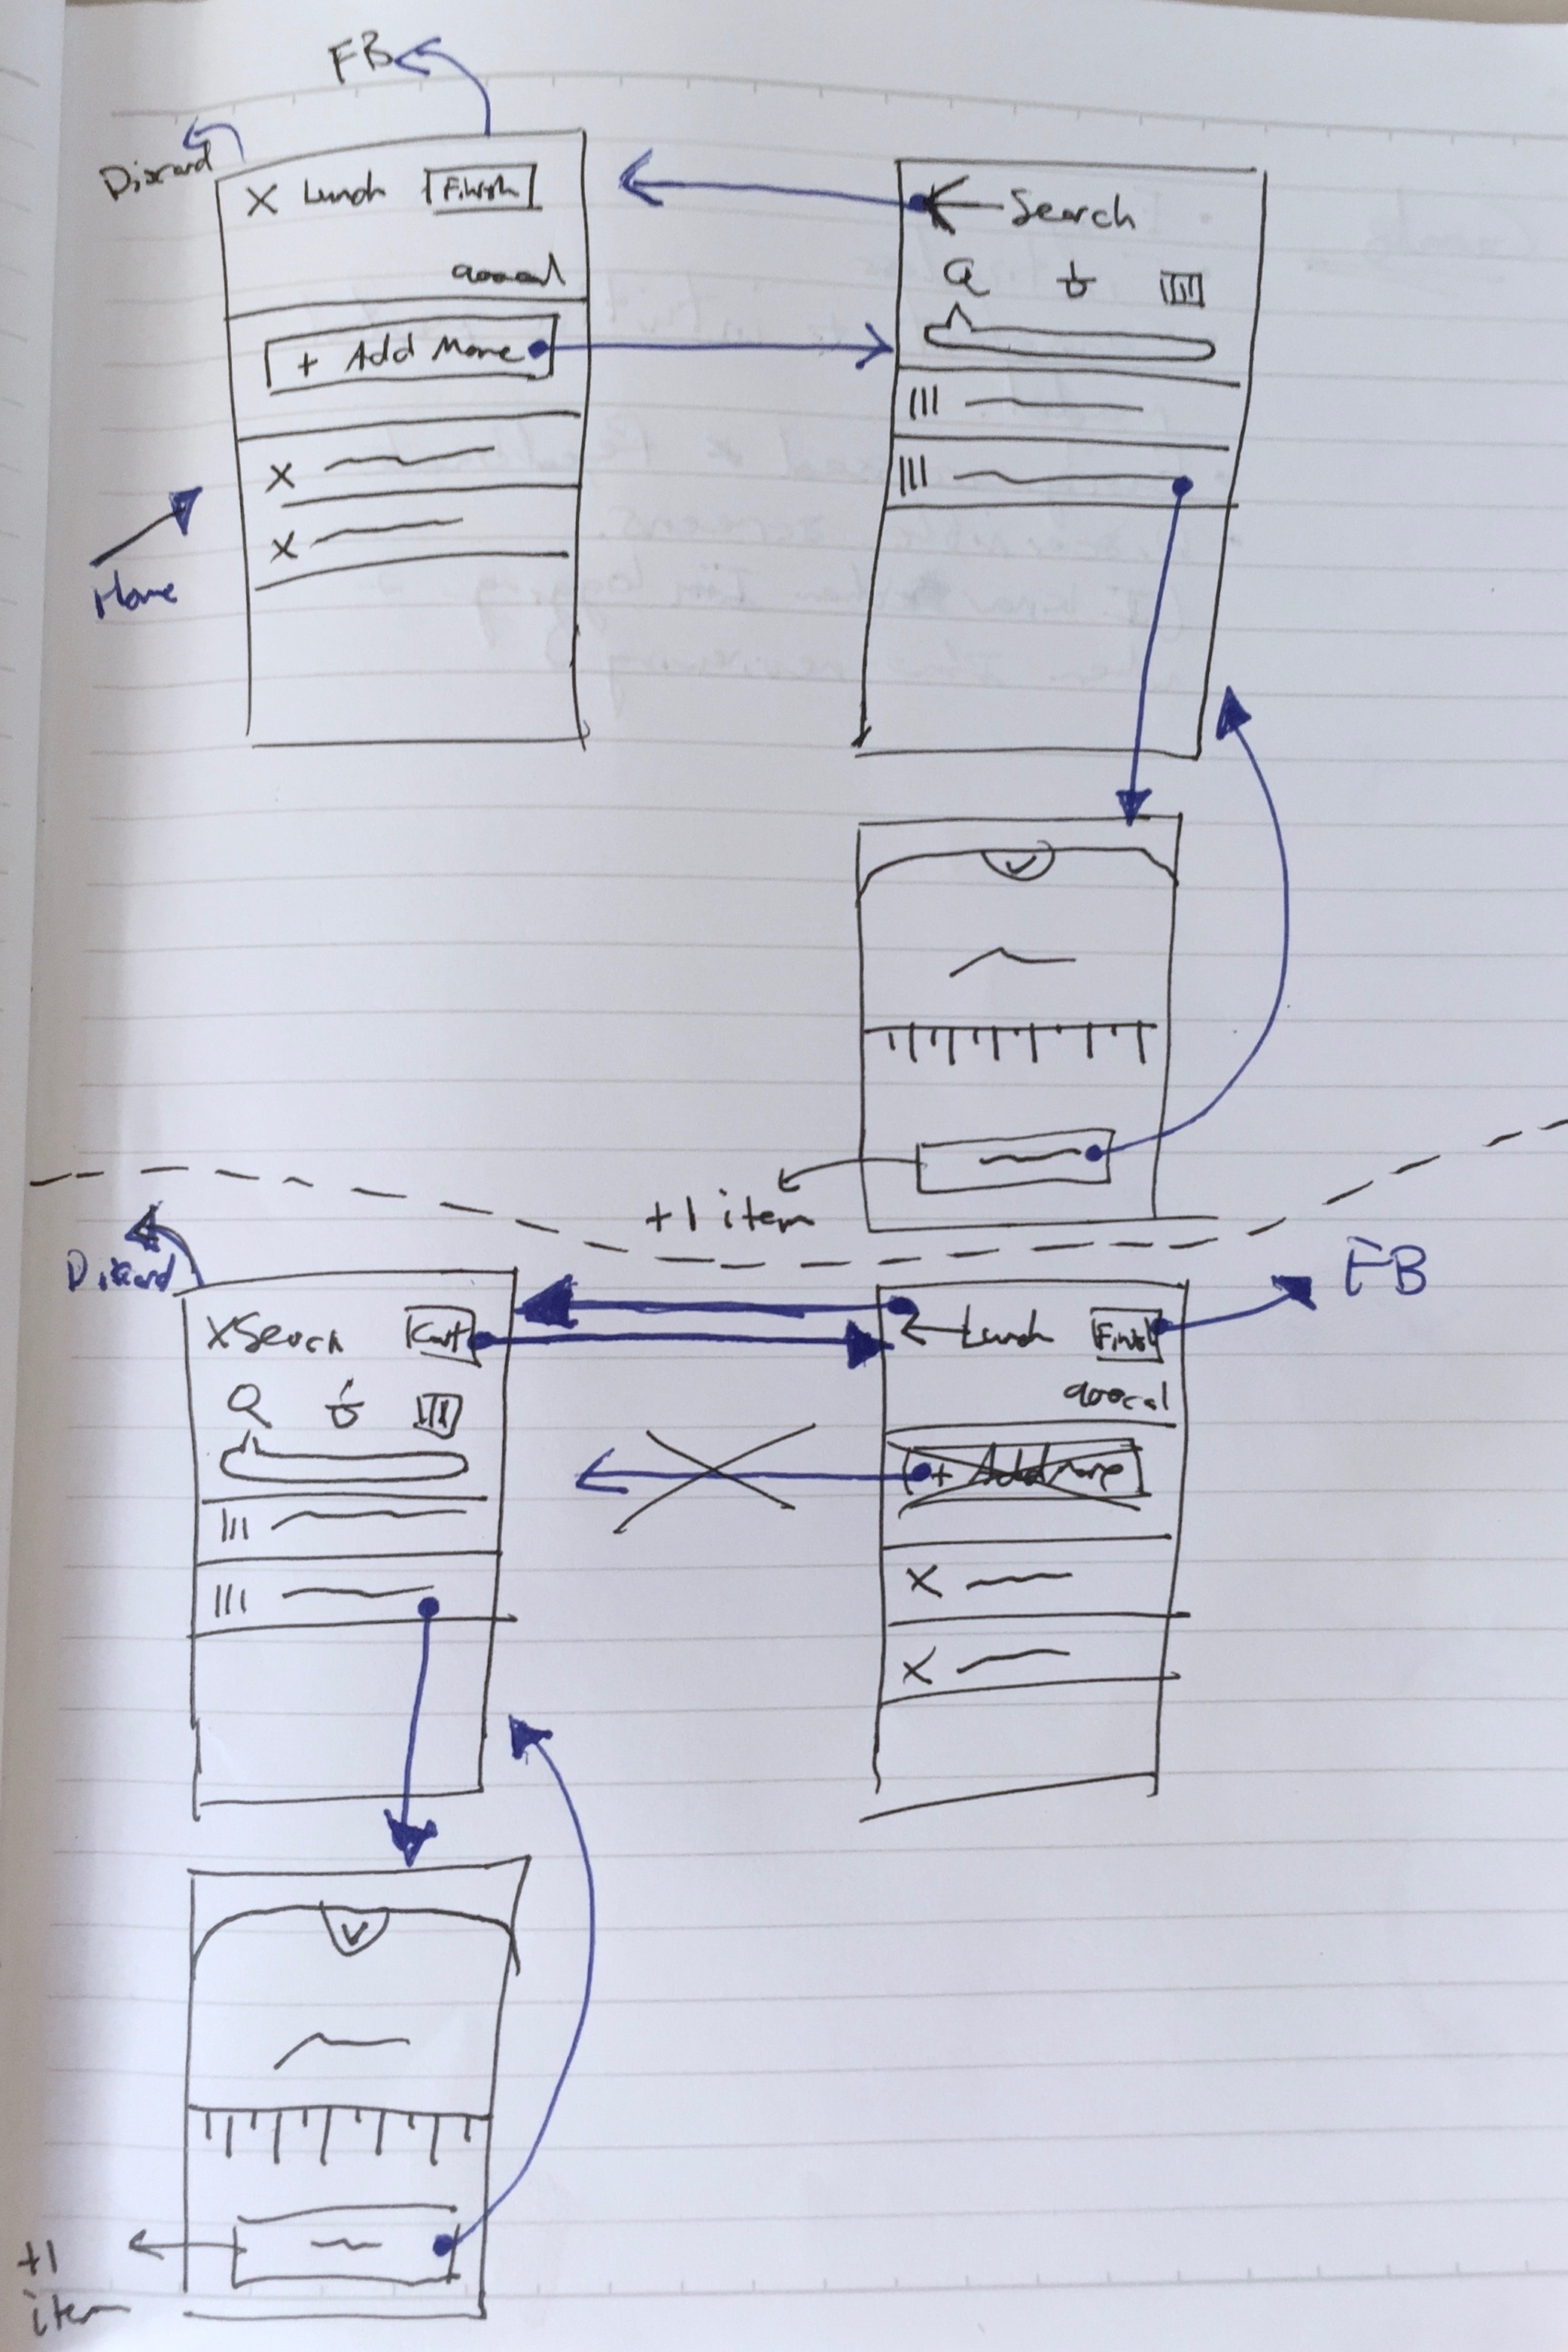 FB
Discard
X Lunch Finish
+ Add More
X
X
Home
← Search
+1 item
Discard
X Search Cart
FB
← Lunch Finish
+ Add more
X
X
+1
item